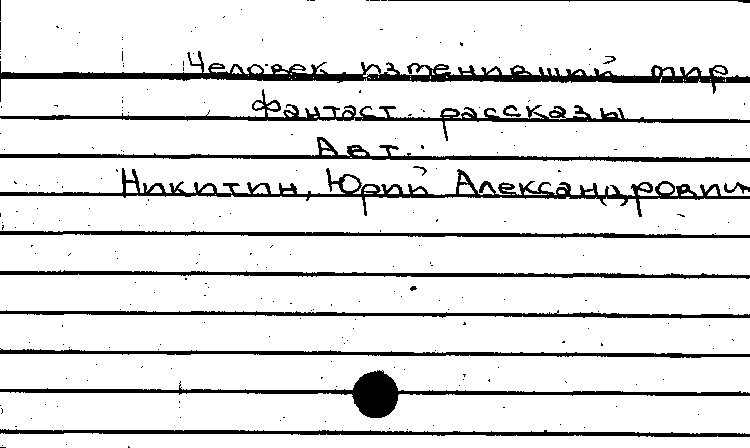 Человек, изменивший мир
Фантаст. рассказы.
Авт.:
Никитин, Юрий Александрович